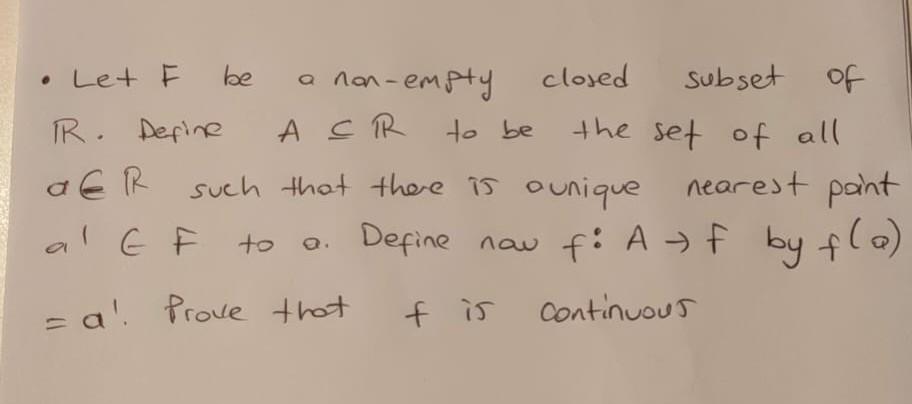 • Let F be a non-empty closed subset of
ℝ. Define A ⊆ ℝ to be the set of all
a ∈ ℝ such that there is a unique nearest point
a' ∈ F to a. Define now f: A → F by f(a)
= a'. Prove that f is continuous